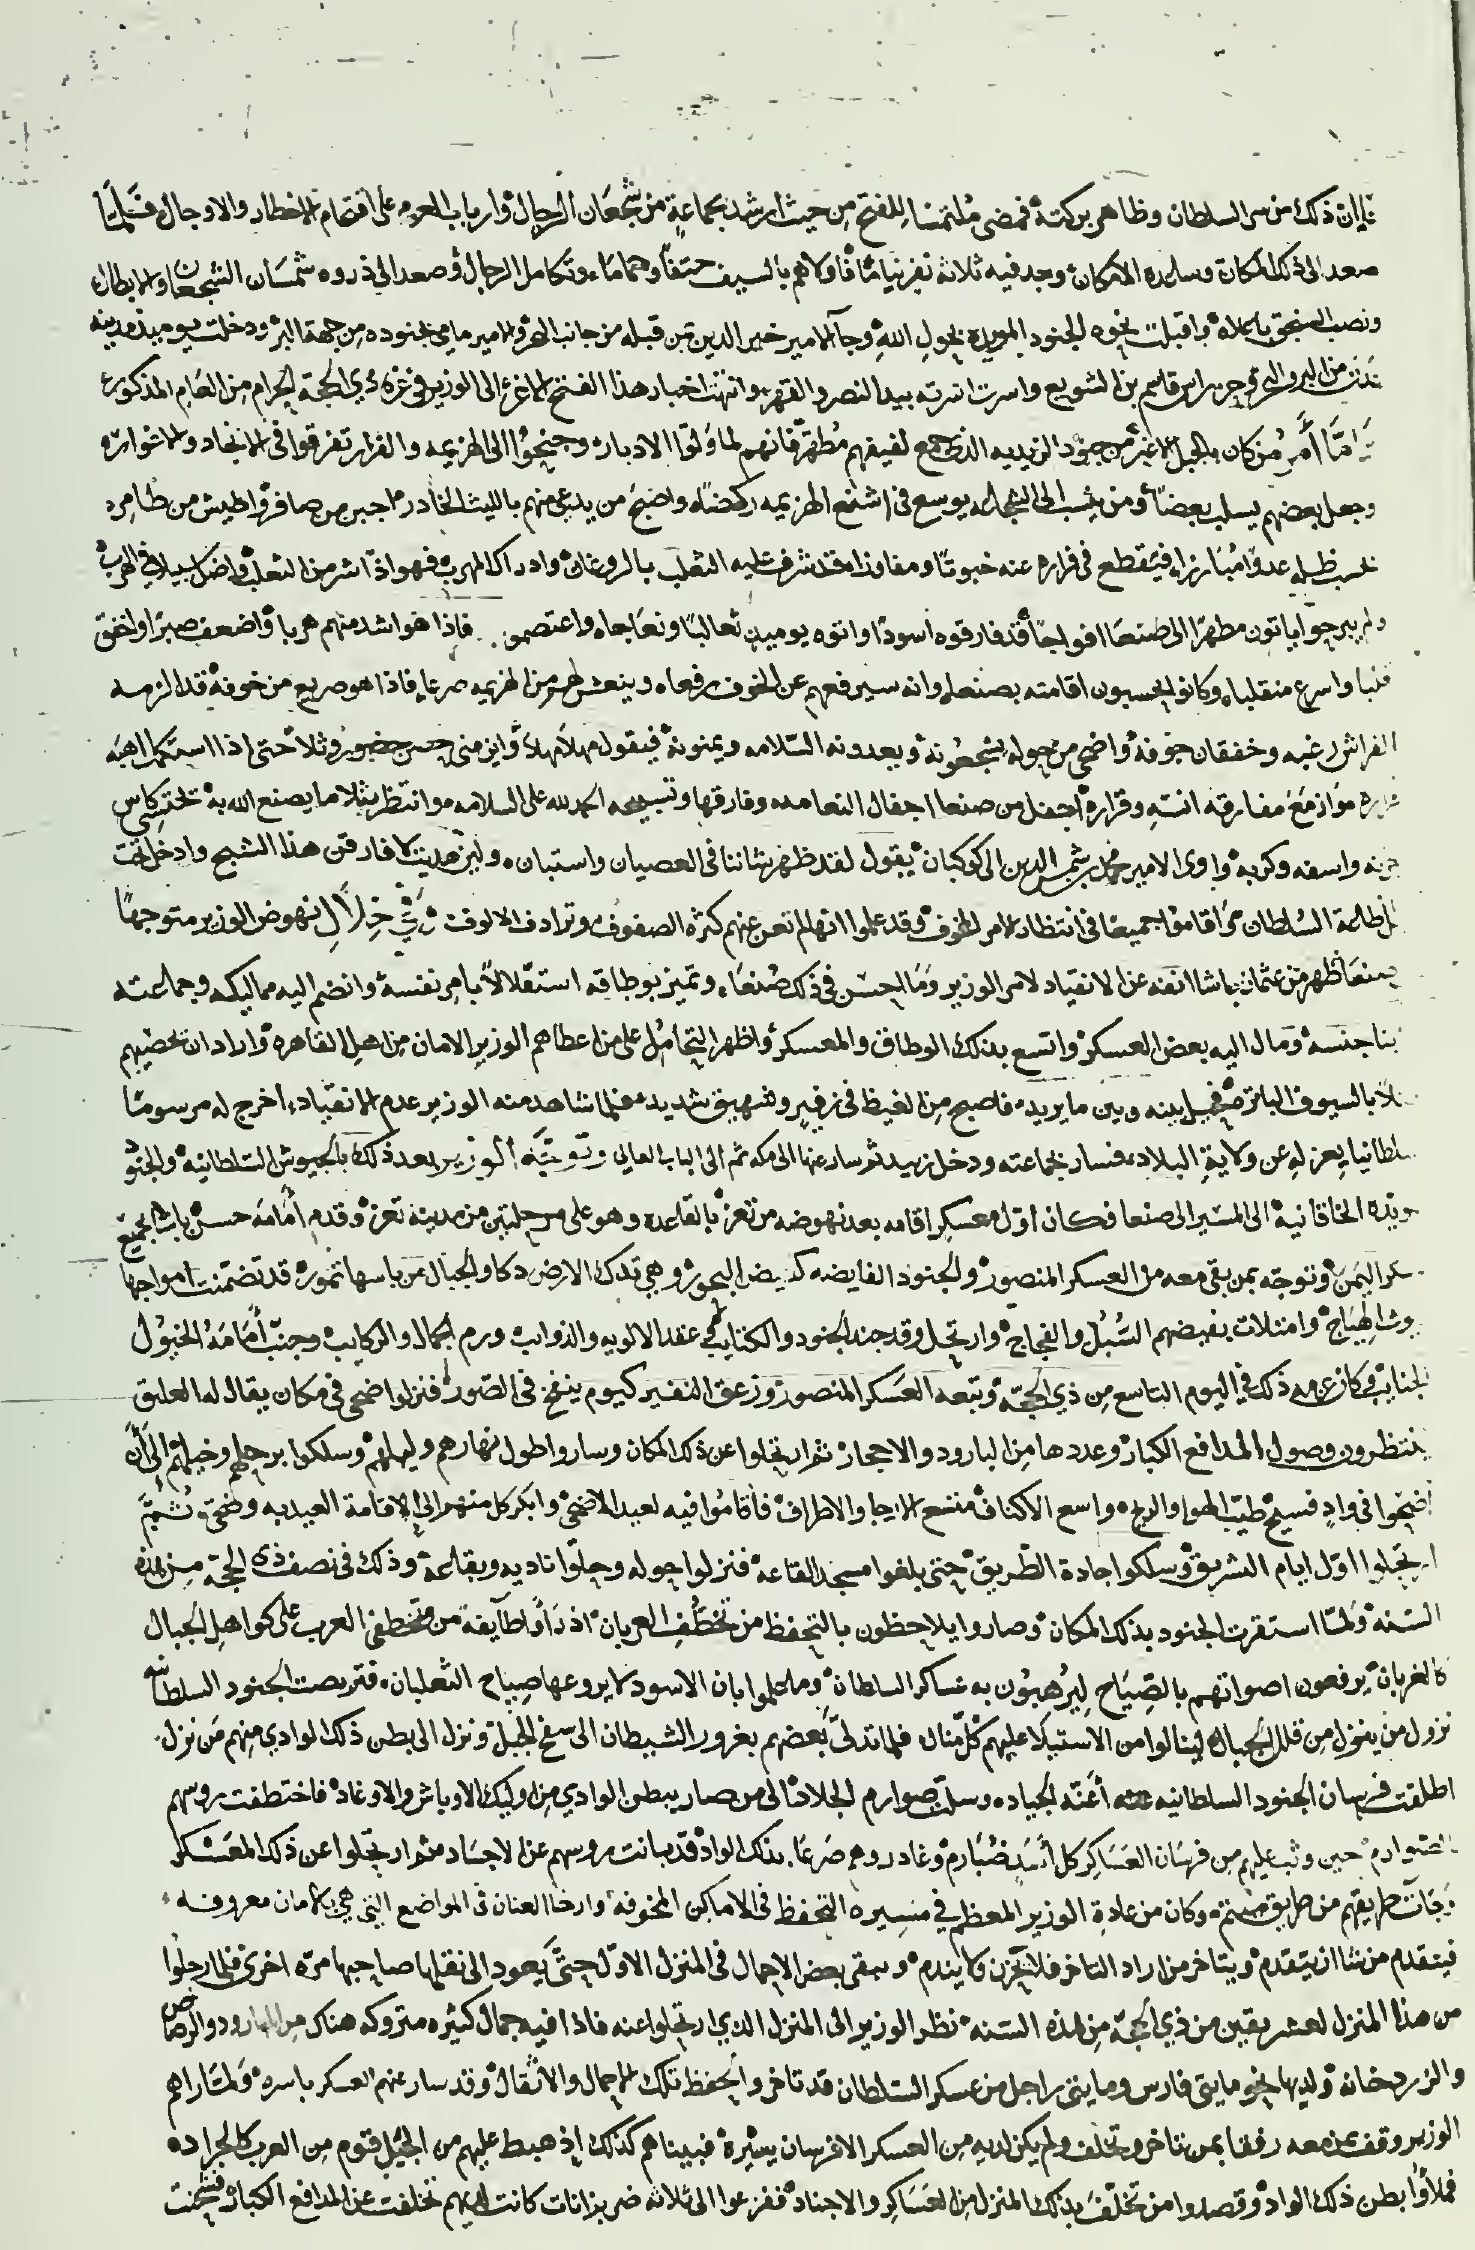 ان ذلك من سر السلطان وظاهر بركته فمضى ملتمسا للفتح من حيث ارشد بجماعة من شجعان الرجال وارباب العزم على اقتحام الاخطار والاوجال فلما
صعد الى ذلك المكان وساعده الامكان وجد فيه ثلاثة نفر نياما فاولاهم بالسيف حتفا وحماما وتكامل الرجال وصعد الى ذروه شمسان الشجعان والابطال
ونصب السنجق باعلاه واقبلت نحوه الجنود المويده بحول الله وجآ الامير خير الدين من قبله من جانب البحر والامير مامي بجنوده من جهة البر ودخلت يوميذ مدينه
عدن من البر والبحر وجز راس قاسم بن الشويع واسرت اسرته بيد النصر والقهر وانتهت اخبار هذا الفتح الاغر الى الوزير في غرة ذي الحجة الحرام من العام المذكور
واما أمر من كان بالجبل الاغبر من جنود الزيديه الذي جمع لفيفهم مطهر فانهم لما ولوا الادبار وجنحوا الى الهزيمه والفرار تفرقوا في الانجاد والاغوار
وجعل بعضهم يسلب بعضا ومن ينسب الى الشجاعه يوسع في اشنع الهزيمه ركضا واضحى من يدعى منهم بالليث الخادر اجبن من صافر واطيش من طامر
يحسب ظله عدوا مبارزا فيقطع في فراره عنه خبوتا ومفاوزا قد شرف عليه الثعلب بالروغان وادراك المهرب فهو اذا اشر من الثعلب واضل سبيلا في الهرب
ولم يبرحوا ياتون مطهرا الى صنعا افواجا قد فارقوه اسودا واتوه يوميذ ثعالبا ونعاجا واعتصموا فاذا هو اشد منهم هربا واضعف صبرا واخفق
قلبا واسرع منقلبا وكانوا يحسبون اقامته بصنعا وانه سيرفعهم عن الخوف رفعا وينعش لهم من الهزيمه صرعا فاذا هو صريع من خوفه قد الزمه
الفراش رعبه وخفقان جوفه واضحى من حوله يشجعونه ويعدونه السلامه ويمنونه فيقول مهلا مهلا واين مني حسن حضور وثلا حتى اذا استكمل اهبه
فراره وازمع مفارقه انسه وقراره اجفل من صنعا اجفال النعامه وفارقها وتسبيحه الحمد لله على السلامه وانتظر بثلا ما يصنع الله به تحتسي كاس
حزنه واسفه وكربه واوى الامير محمد بن شمس الدين الى كوكبان يقول لقد ظهر شاننا في العصيان واستبان ولين هديت لا فارقن هذا الشيخ وادخل تحت
طاعة السلطان واقاموا جميعا في انتظار الامر المخوف وقد علموا انها لم تغن عنهم كثرة الصفوف وترادف الالوف وفي خلال نهوض الوزير متوجها
صنعا ظهر من عثمان باشا انفه عن الانقياد لامر الوزير وما احسن في ذلك صنعا وتميز بوطاقه استقلالا بامر نفسه وانضم اليه مماليكه وجماعته
ابنا جنسه ومال اليه بعض العسكر واتسع بذلك الوطاق والمعسكر واظهر التحامل على من اعطاهم الوزير الامان من اهل القاهره واراد ان يخصهم
قتلا بالسيوف الباتره فحيل بينه وبين ما يريد فاصبح من الغيظ في زفير وشهيق شديد فلما شاهد منه الوزير عدم الانقياد اخرج له مرسوما
سلطانيا يعزله عن ولاية البلاد فسار بجماعته ودخل زبيد ثم سار عنها الى مكه ثم الى الباب العالي وتوجه الوزير بعد ذلك بالجيوش السلطانيه والجنود
المويده الخاقانيه الى المسير الى صنعا فكان اول معسكر اقامه بعد نهوضه من تعز بالقاعده وهو على مرحلتين من مدينه تعز وقدم أمامه حسن باشا بجميع
عسكر اليمن وتوجه بمن بقى معه من العسكر المنصور والجنود الفايضه كفيض البحور وهي تدك الارض دكا والجبال من باسها تمور قد تضمنت امواجها
ليوث الهياج وامتلات بفيضهم السبل والفجاج وارتحل وقد جند الجنود والكتايب في عقد الالويه والذوايب وزم الجمال والركايب وجنب أمامه الخيول
الجنايب في كان عزمه ذلك في اليوم التاسع من ذي الحجة وتبعه العسكر المنصور وزعق النفير كيوم ينفخ في الصور فنزلوا ضحى في مكان يقال له العليق
ينتظرون وصول المدافع الكبار وعددها من البارود والاحجار ثم ارتحلوا عن ذلك المكان وساروا طول نهارهم وليلهم وسلكوا برجلهم وخيلهم إلى أن
اضحوا في وادٍ فسيح طيب الهوا والريح واسع الاكناف متسع الارجا والاطراف فأقاموا فيه لعيد الاضحى وابكر كل منهم الى اقامة العيديه وضحى ثم
ارتحلوا اول ايام التشريق وسلكوا جادة الطريق حتى بلغوا مسجد القاعه فنزلوا حوله وحلوا ناديه وبقاعه وذلك في نصف ذي الحجة من هذه
السنه ولما استقرت الجنود بذلك المكان وصاروا يلاحظون بالتحفظ من تخطف العربان اذ رأوا طآيفة من متخطفي العرب على كواهل الجبال
كالغربان يرفعون اصواتهم بالصياح ليرهبون به عساكر السلطان وما علموا بان الاسود لا يروعها صياح الثعلبان فتربصت الجنود السلطانيه
نزول من ينزل من قلل الجبال لينالوا من الاستيلا عليهم كل منال فلما تدلى بعضهم بغرور الشيطان الى سفح الجبل ونزل الى بطن ذلك الوادي منهم من نزل
اطلقت فرسان الجنود السلطانيه أعنه الجياد وسلت صوارم الجلاد الى من صار ببطن الوادي من اوليك الاوباش والاوغاد فاختطفت روسهم
الصوارم حين وثب عليهم من فرسان العساكر كل أسد ضبارم وغادروهم صرعا بذلك الواد قد بانت روسهم عن الاجساد ثم ارتحلوا عن ذلك المعسكر
وجات طريقهم من طريق وكان من عادة الوزير المعظم في مسيره التحفظ في الاماكن المخوفه وارخا العنان في المواضع التي هي بالامان معروفه
فيتقدم من شا ان يتقدم ويتاخر من اراد التاخر فلا يحزن ولا يندم ويبقى بعض الاحمال في المنزل الاول حتى يعود الى نقلها صاحبها مره اخرى فلما رحلوا
من هذا المنزل لعشر بقين من ذي الحجة من هذه السنه نظر الوزير الى المنزل الذي ارتحلوا عنه فاذا فيه جمال كثيره متروكه هناك من البارود والرصاص
والزردخانه ولديها نحو مايتى فارس ومايتى راجل من عسكر السلطان قد تاخروا لحفظ تلك الاحمال والاثقال وقد سار عنهم العسكر باسره ولما راهم
الوزير وقف بمن معه رفقا بمن تاخر وتخلف ولم يكن لديه من العسكر الا فرسان يسيره فبيناهم كذلك إذ هبط عليهم من الجبل قوم من العرب كالجراده
فملأوا بطن ذلك الواد وقصدوا من تخلف بذلك المنزل من العساكر والاجناد ففزعوا الى ثلاثه ضربزانات كانت لديهم تخلفت عن المدافع الكبار فشحنت